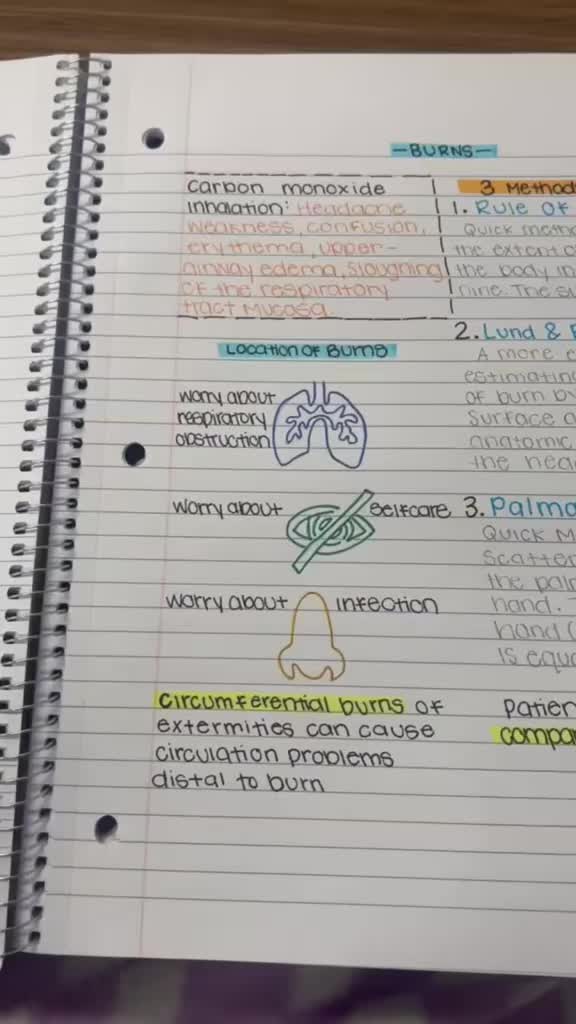 —BURNS—
Carbon monoxide
Inhalation: Headache
weakness, confusion,
erythema, upper-
airway edema, sloughing
of the respiratory
tract Mucosa
Location of Burns
worry about
respiratory
obstruction
worry about selfcare
worry about infection
circumferential burns of
extermities can cause
circulation problems
distal to burn
3 Method
1. Rule of
Quick metho
the extent o
the body in
nine. The su
2. Lund &
A more e
estimating
of burn by
Surface a
anatomic
the hea
3. Palma
Quick M
Scatter
the pal
hand. T
hand (
is equa
Patien
compa